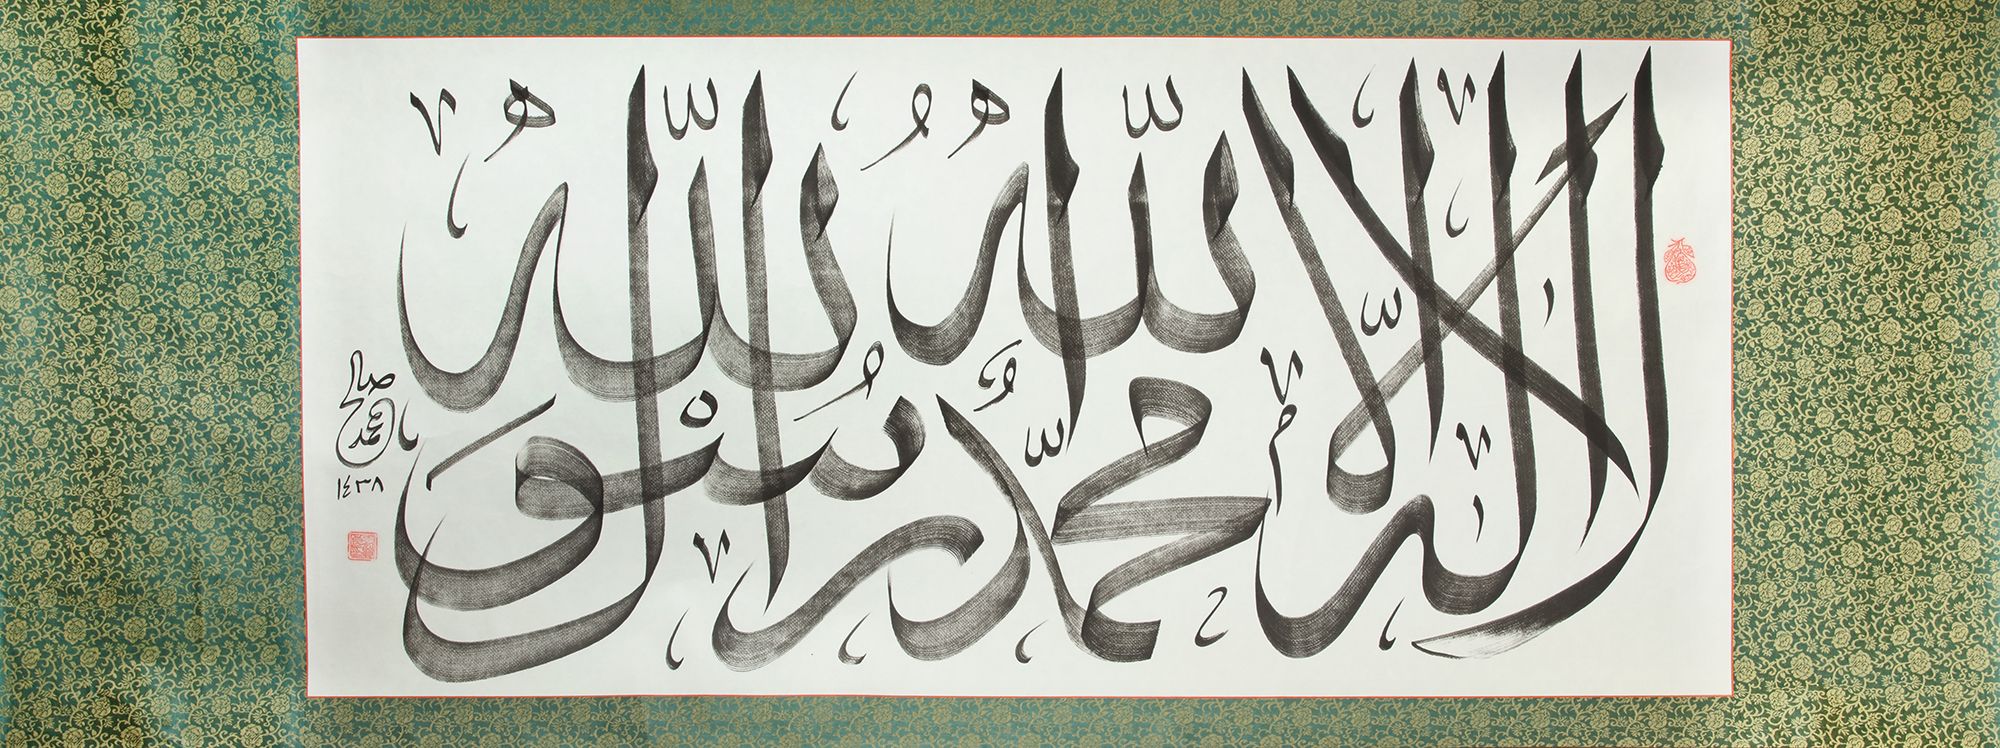 لا إله إلا الله محمد رسول الله
صالح
محمد
١٤٣٨